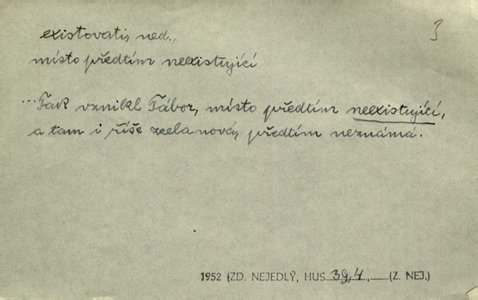 existovati, ned., 3
místo předtím neexistující
...Tak vznikl Tábor, místo předtím neexistující,
a tam i říše zcela nová, předtím neznámá.
1952 (ZD. NEJEDLÝ, HUS 39,4. (Z. NEJ.)